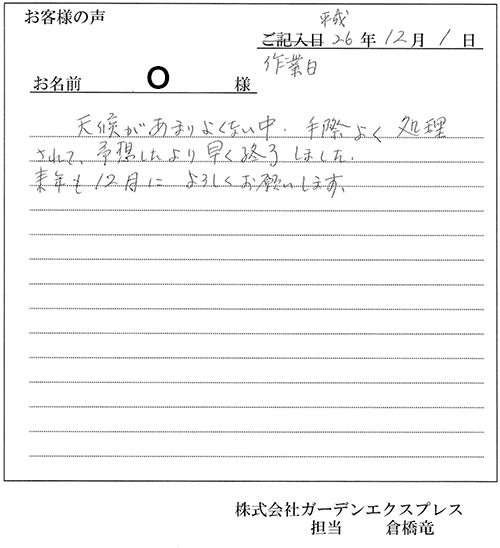 お客様の声
平成
ご記入日 26年 12月 1日
作業日
お名前 O 様
天候があまりよくない中、手際よく処理
されて、予想したより早く終了しました。
来年も12月によろしくお願いします。
株式会社ガーデンエクスプレス
担当 倉橋竜